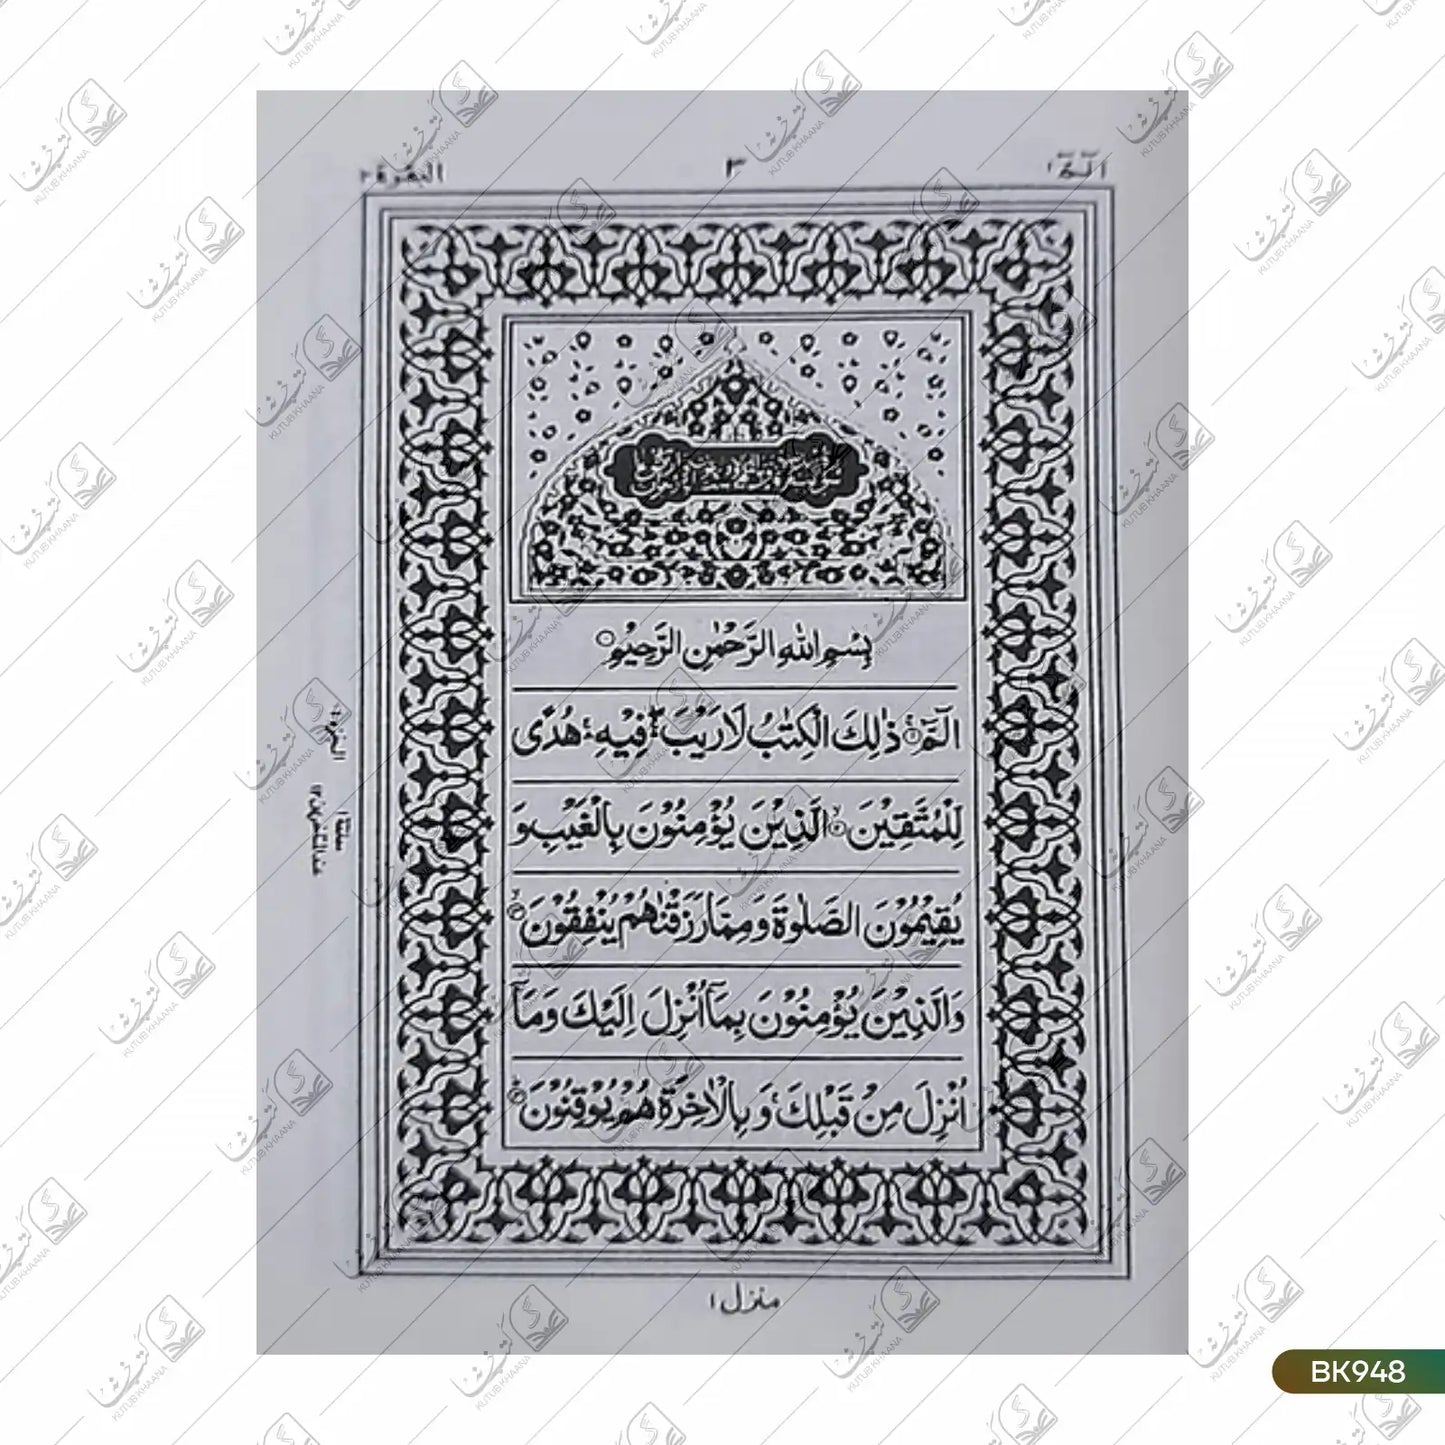 الٓمّٓ ١
٣
البقرة ٢
بِسْمِ اللّٰهِ الرَّحْمٰنِ الرَّحِيْمِ
الٓمّٓ ۚ ذٰلِكَ الْكِتٰبُ لَا رَيْبَ ۛ فِيْهِ ۛ هُدًى
لِّلْمُتَّقِيْنَ ۙ الَّذِيْنَ يُؤْمِنُوْنَ بِالْغَيْبِ وَ
يُقِيْمُوْنَ الصَّلٰوةَ وَمِمَّا رَزَقْنٰهُمْ يُنْفِقُوْنَ ۙ
وَالَّذِيْنَ يُؤْمِنُوْنَ بِمَآ اُنْزِلَ اِلَيْكَ وَمَآ
اُنْزِلَ مِنْ قَبْلِكَ ۚ وَبِالْاٰخِرَةِ هُمْ يُوْقِنُوْنَ ؕ
منزل ١
BK948
KUTUB KHAANA